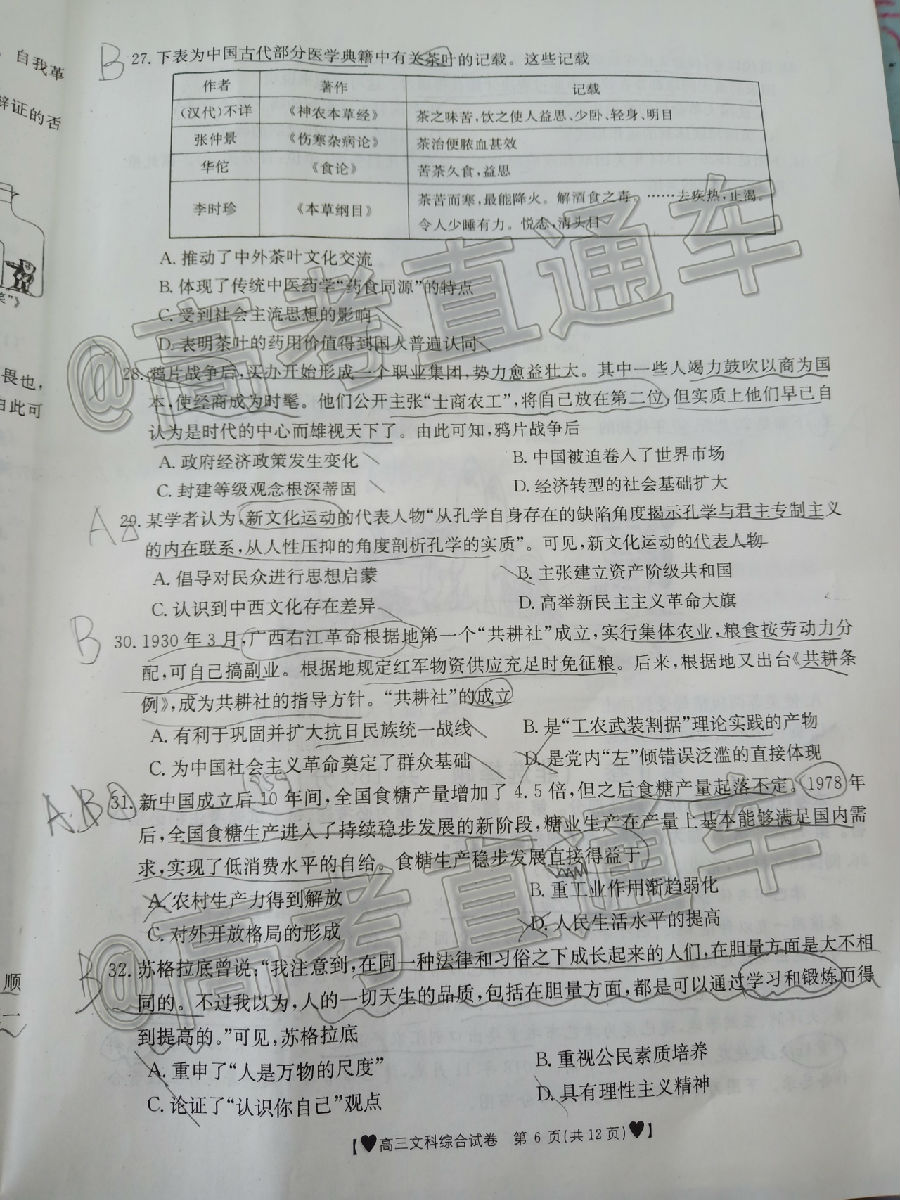 自我革
辩证的否
畏也,
由此可
顺
B 27. 下表为中国古代部分医学典籍中有关茶叶的记载。这些记载
作者 著作 记载
(汉代)不详 《神农本草经》 茶之味苦,饮之使人益思、少卧、轻身、明目
张仲景 《伤寒杂病论》 茶治便脓血甚效
华佗 《食论》 苦茶久食,益思
李时珍 《本草纲目》 茶苦而寒,最能降火。解酒食之毒。……去疾热,止渴。
令人少睡有力。悦志,清头目
A. 推动了中外茶叶文化交流
B. 体现了传统中医药学“药食同源”的特点
C. 受到社会主流思想的影响
D. 表明茶叶的药用价值得到国人普遍认同
28. 鸦片战争后,买办开始形成一个职业集团,势力愈益壮大。其中一些人竭力鼓吹以商为国
本,使经商成为时髦。他们公开主张“士商农工”,将自己放在第二位,但实质上他们早已自
认为是时代的中心而雄视天下了。由此可知,鸦片战争后
A. 政府经济政策发生变化 B. 中国被迫卷入了世界市场
C. 封建等级观念根深蒂固 D. 经济转型的社会基础扩大
A 29. 某学者认为,新文化运动的代表人物“从孔学自身存在的缺陷角度揭示孔学与君主专制主义
的内在联系,从人性压抑的角度剖析孔学的实质”。可见,新文化运动的代表人物
A. 倡导对民众进行思想启蒙 B. 主张建立资产阶级共和国
C. 认识到中西文化存在差异 D. 高举新民主主义革命大旗
B 30. 1930年3月,广西右江革命根据地第一个“共耕社”成立,实行集体农业,粮食按劳动力分
配,可自己搞副业。根据地规定红军物资供应充足时免征粮。后来,根据地又出台《共耕条
例》,成为共耕社的指导方针。“共耕社”的成立
A. 有利于巩固并扩大抗日民族统一战线 B. 是“工农武装割据”理论实践的产物
C. 为中国社会主义革命奠定了群众基础 D. 是党内“左”倾错误泛滥的直接体现
A.B 31. 新中国成立后10年间,全国食糖产量增加了4.5倍,但之后食糖产量起落不定。1978年
后,全国食糖生产进入了持续稳步发展的新阶段,糖业生产在产量上基本能够满足国内需
求,实现了低消费水平的自给。食糖生产稳步发展直接得益于
A. 农村生产力得到解放 B. 重工业作用渐趋弱化
C. 对外开放格局的形成 D. 人民生活水平的提高
B 32. 苏格拉底曾说:“我注意到,在同一种法律和习俗之下成长起来的人们,在胆量方面是大不相
同的。不过我以为,人的一切天生的品质,包括在胆量方面,都是可以通过学习和锻炼而得
到提高的。”可见,苏格拉底
A. 重申了“人是万物的尺度” B. 重视公民素质培养
C. 论证了“认识你自己”观点 D. 具有理性主义精神
【♥高三文科综合试卷 第6页(共12页)♥】
@高考直通车
@高考直通车